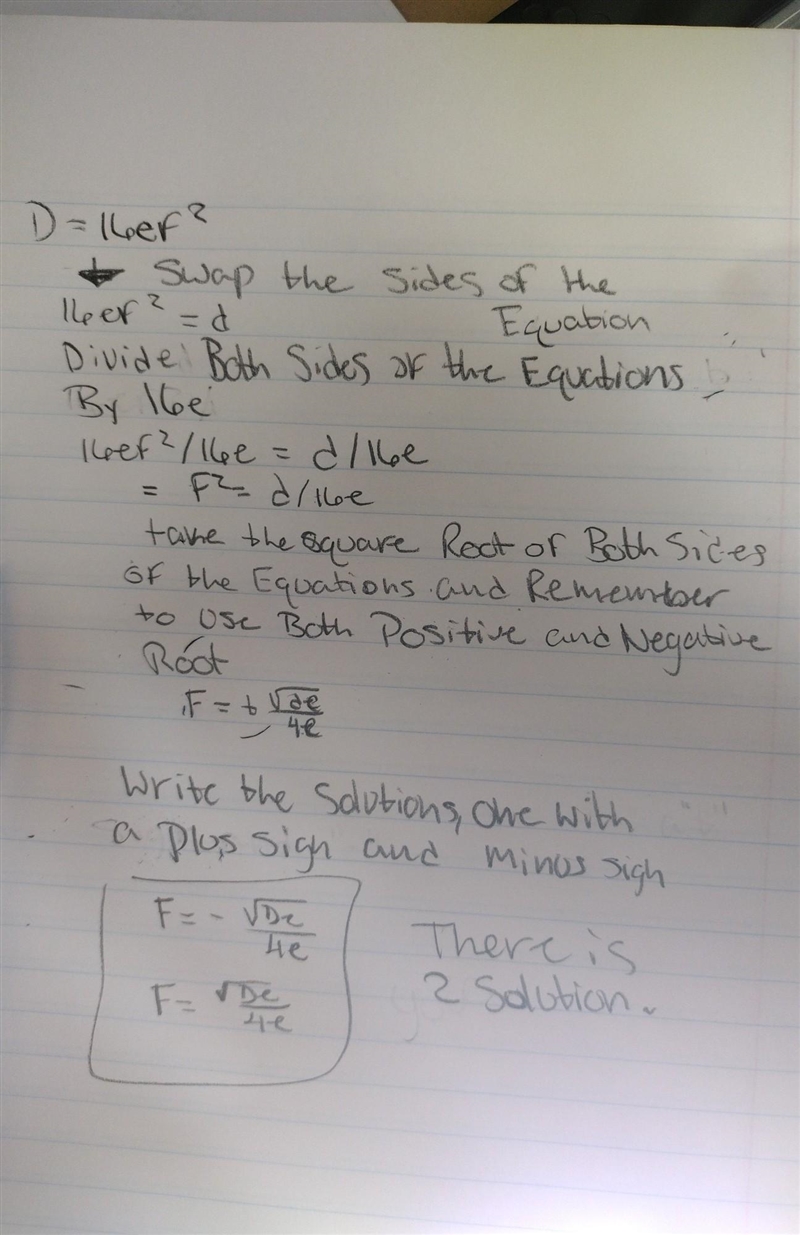 D = 16ef²
Swap the sides of the
Equation
16ef² = d
Divide Both Sides of the Equations
By 16e
16ef²/16e = d/16e
= F² = d/16e
take the square Root of Both Sides
of the Equations and Remember
to use Both Positive and Negative
Root
F = ± √de/4e
Write the Solutions, one with
a plus sigh and minus sigh
F = - √De/4e
F = √De/4e
There is
2 Solution.